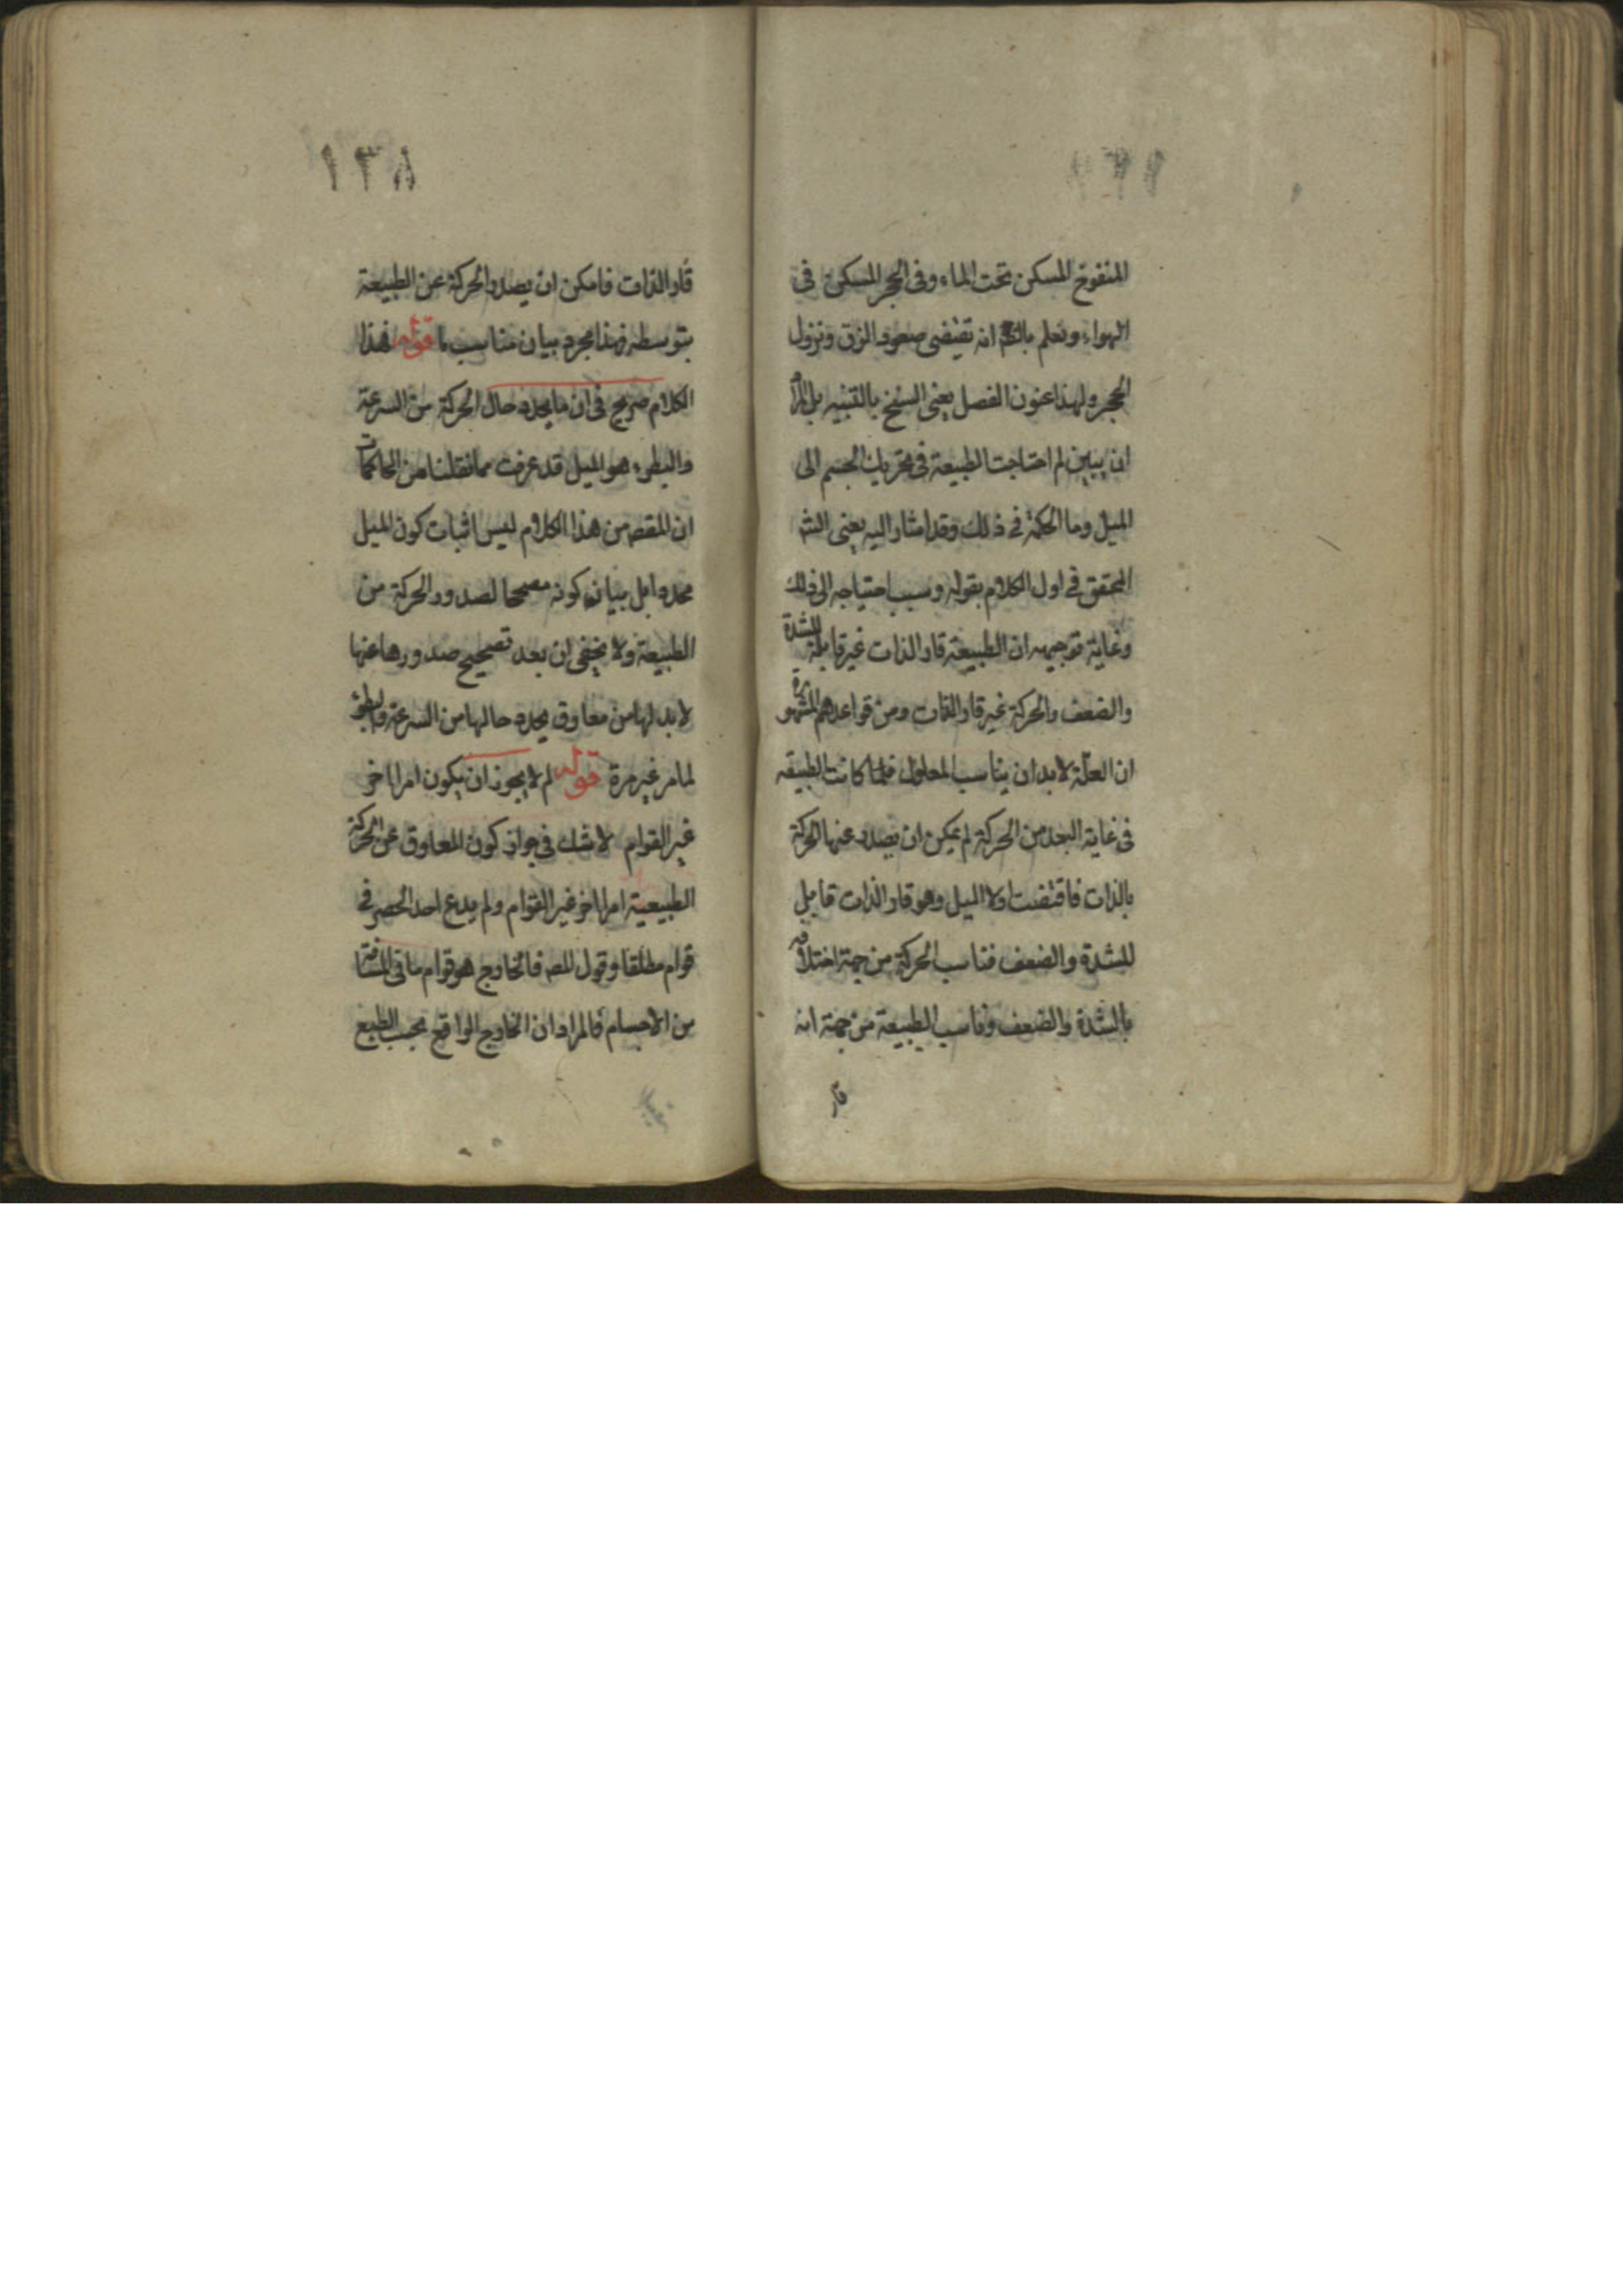 المنفوخ المسكن تحت الماء وفى الحجر المسكن فى
الهواء ونعلم انه تقتضى صعود الزق ونزول
الحجر ولهذا عنون الفصل يعنى الشيخ بالتنبيه بل المراد
ان يبين لم احتاجت الطبيعة فى تحريك الجسم الى
الميل وما الحكمة فى ذلك وقد اشار اليه يعنى الشر
المحقق فى اول الكلام بقوله وسبب احتياجه الى ذلك
وغاية توجيهه ان الطبيعة قار الذات غير قابلة للشدة
والضعف والحركة غير قار الذات ومن قواعدهم المشهورة
ان العلة لابد ان يناسب المعلول فلما كانت الطبيعة
فى غاية البعد من الحركة لم يمكن ان يصدر عنها الحركة
بالذات فاقتضت اولا الميل وهو قار الذات قابل
للشدة والضعف فناسب الحركة من جهة اختلافه
بالشدة والضعف وناسب الطبيعة من جهة انه
قار
١٣٨
قار الذات فامكن ان يصدر الحركة عن الطبيعة
بتوسطه فهذا مجرد بيان مناسب ما قوله فهذا
الكلام صريح فى ان ما يحدد حال الحركة من السرعة
والبطوء هو الميل قد عرفت مما نقلنا من المحاكمات
ان المقصه من هذا الكلام ليس اثبات كون الميل
محددا بل بيان كونه مصححا لصدور الحركة من
الطبيعة ولا يخفى ان بعد تصحيح صدورها عنها
لابد لها من معاوق يحدد حالها من السرعة والبطؤ
لما مر غير مرة قوله لم لا يجوز ان يكون امرا اخر
غير القوام لا شك فى جواز كون المعاوق عن الحركة
الطبيعية امرا اخر غير القوام ولم يدع احد الحصر فى
قوام مطلقا وقول المصه فالخارج هو قوام ما فى المسافة
من الاجسام فالمراد ان الخارج الواقع بحسب الطبع